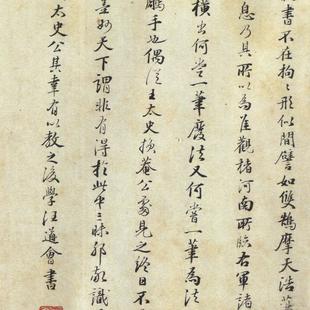 書不在拘〻形似間譬如雙鵠摩天浩
息乃其所以為佳觀褚河南所臨右軍諸
橫出何嘗一筆廢法又何嘗一筆為法
手也偶從王太史損菴公處見之終日不
天下謂非有得於此中三昧邪敬識
太史公其幸有以教之後學汪道會書